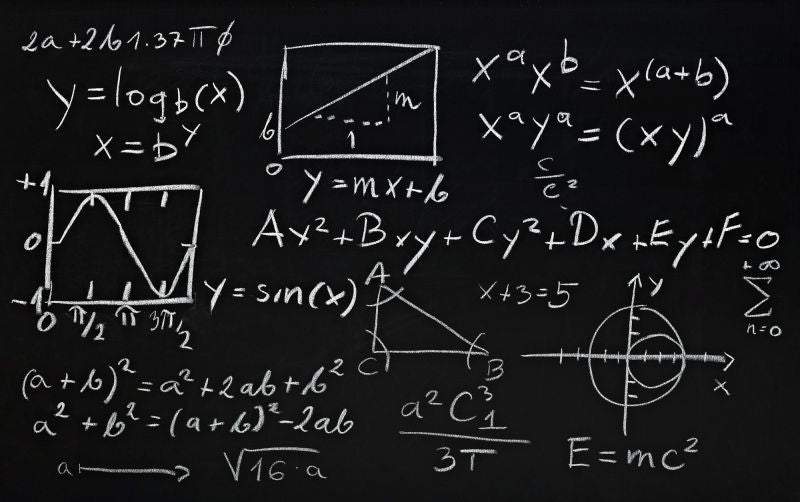 2a+2b1.37πφ
y=log_b(x)
x=b^y
b
m
1
0
y=mx+b
x^a x^b = x^(a+b)
x^a y^a = (xy)^a
c/c^2
+1
0
-1
0 π/2 π 3π/2
y=sin(x)
Ay^2+Bxy+Cy^2+Dx+Ey+F=0
A
C
B
x+3=5
y
x
+∞
∑
n=0
(a+b)^2=a^2+2ab+b^2
a^2+b^2=(a+b)^2-2ab
a → √16·a
a^2C^3_1
3T
E=mc^2